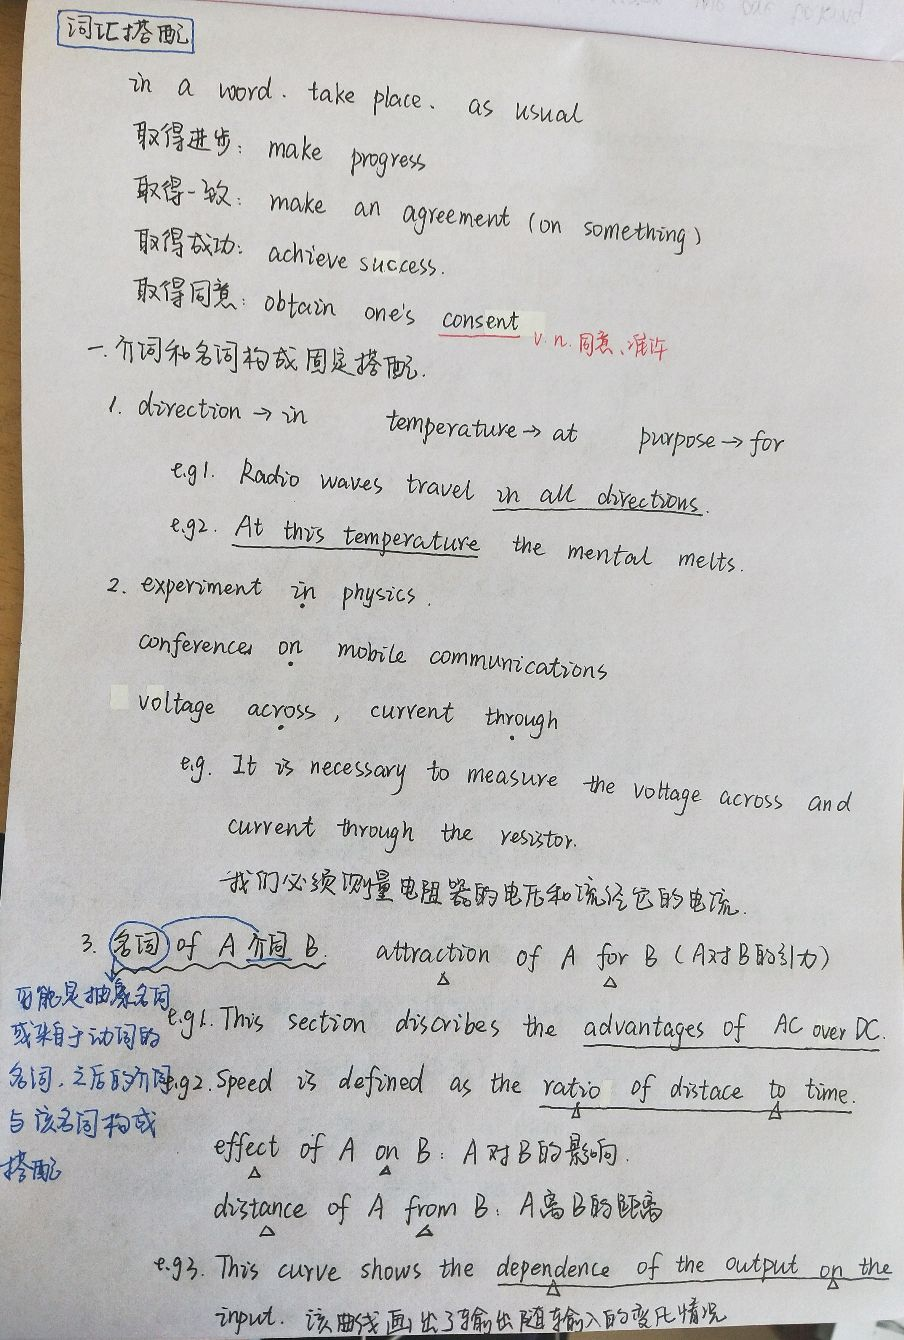 词汇搭配
in a word. take place. as usual
取得进步: make progress
取得一致: make an agreement (on something)
取得成功: achieve success.
取得同意: obtain one's consent
v. n. 同意、准许
一. 介词和名词构成固定搭配.
1. direction → in temperature → at purpose → for
e.g1. Radio waves travel in all directions.
e.g2. At this temperature the mental melts.
2. experiment in physics.
conferences on mobile communications
voltage across, current through
e.g. It is necessary to measure the voltage across and
current through the resistor.
我们必须测量电阻器的电压和流经它的电流.
3. 名词 of A 介词 B. attraction of A for B (A对B的引力)
可能是抽象名词
或来自于动词的
名词, 之后的介词
与该名词构成
搭配
e.g1. This section discribes the advantages of AC over DC.
e.g2. Speed is defined as the ratio of distace to time.
effect of A on B: A对B的影响.
distance of A from B: A离B的距离
e.g3. This curve shows the dependence of the output on the
input. 该曲线画出了输出随输入的变化情况